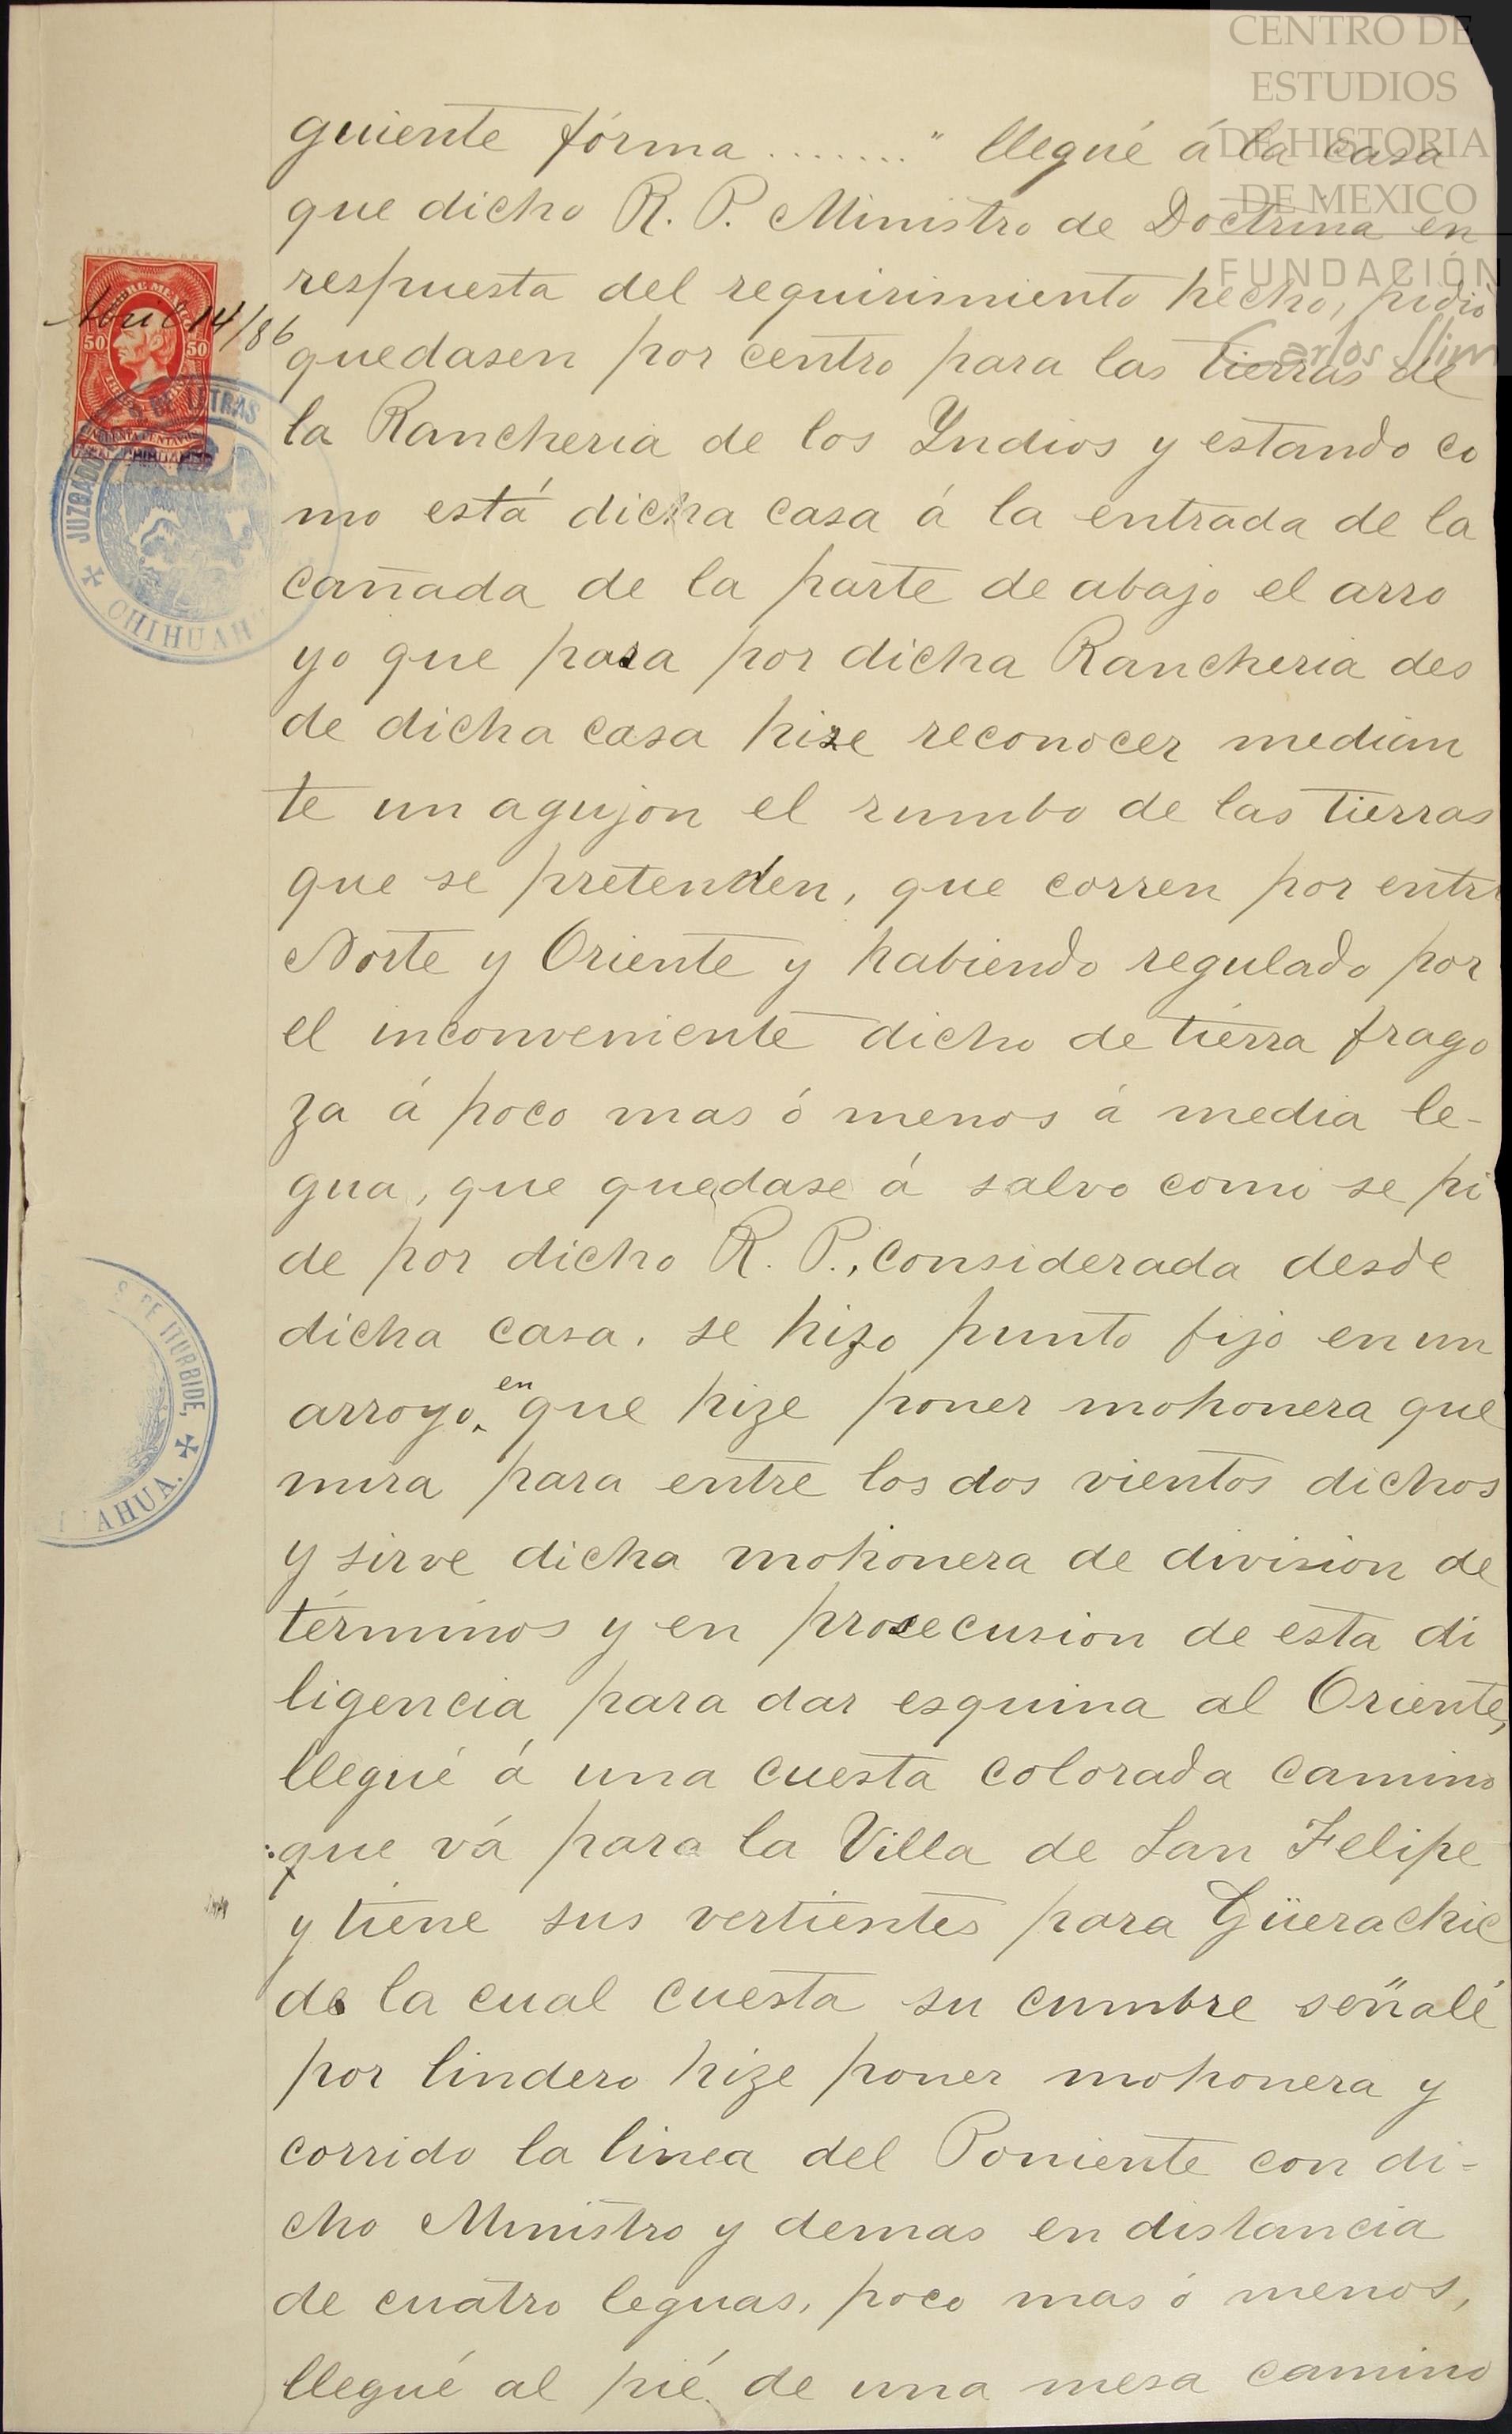 CENTRO DE
ESTUDIOS
DE HISTORIA
DE MEXICO
FUNDACIÓN
Carlos Slim
guiente fórma ........" llegué á la casa
que dicho R. P. Ministro de Doctrina en
respuesta del requirimiento hecho, pidió
quedasen por centro para las tierras de
la Rancheria de los Yndios y estando co
mo está dicha casa á la entrada de la
cañada de la parte de abajo el arro
yo que pasa por dicha Rancheria des
de dicha casa hize reconocer median
te un agujon el rumbo de las tierras
que se pretenden, que corren por entre
Norte y Oriente y habiendo regulado por
el inconveniente dicho de tierra frago
za á poco mas ó menos á media le-
gua, que quedase á salvo como se pi
de por dicho R. P., considerada desde
dicha casa, se hizo punto fijo en un
arroyo, en que hize poner mohonera que
mira para entre los dos vientos dichos
y sirve dicha mohonera de division de
términos y en prosecusion de esta di
ligencia para dar esquina al Oriente,
llegué á una cuesta colorada camino
que vá para la Villa de San Felipe
y tiene sus vertientes para Güerachic
de la cual cuesta su cumbre señalé
por lindero hize poner mohonera y
corrido la linea del Poniente con di-
cho Ministro y demas en distancia
de cuatro leguas, poco mas ó menos,
llegué al pié de una mesa camino
Abril 14/86
50 50
JUZGADO DE LETRAS
CHIHUAH
DE ITURBIDE,
AHUA.